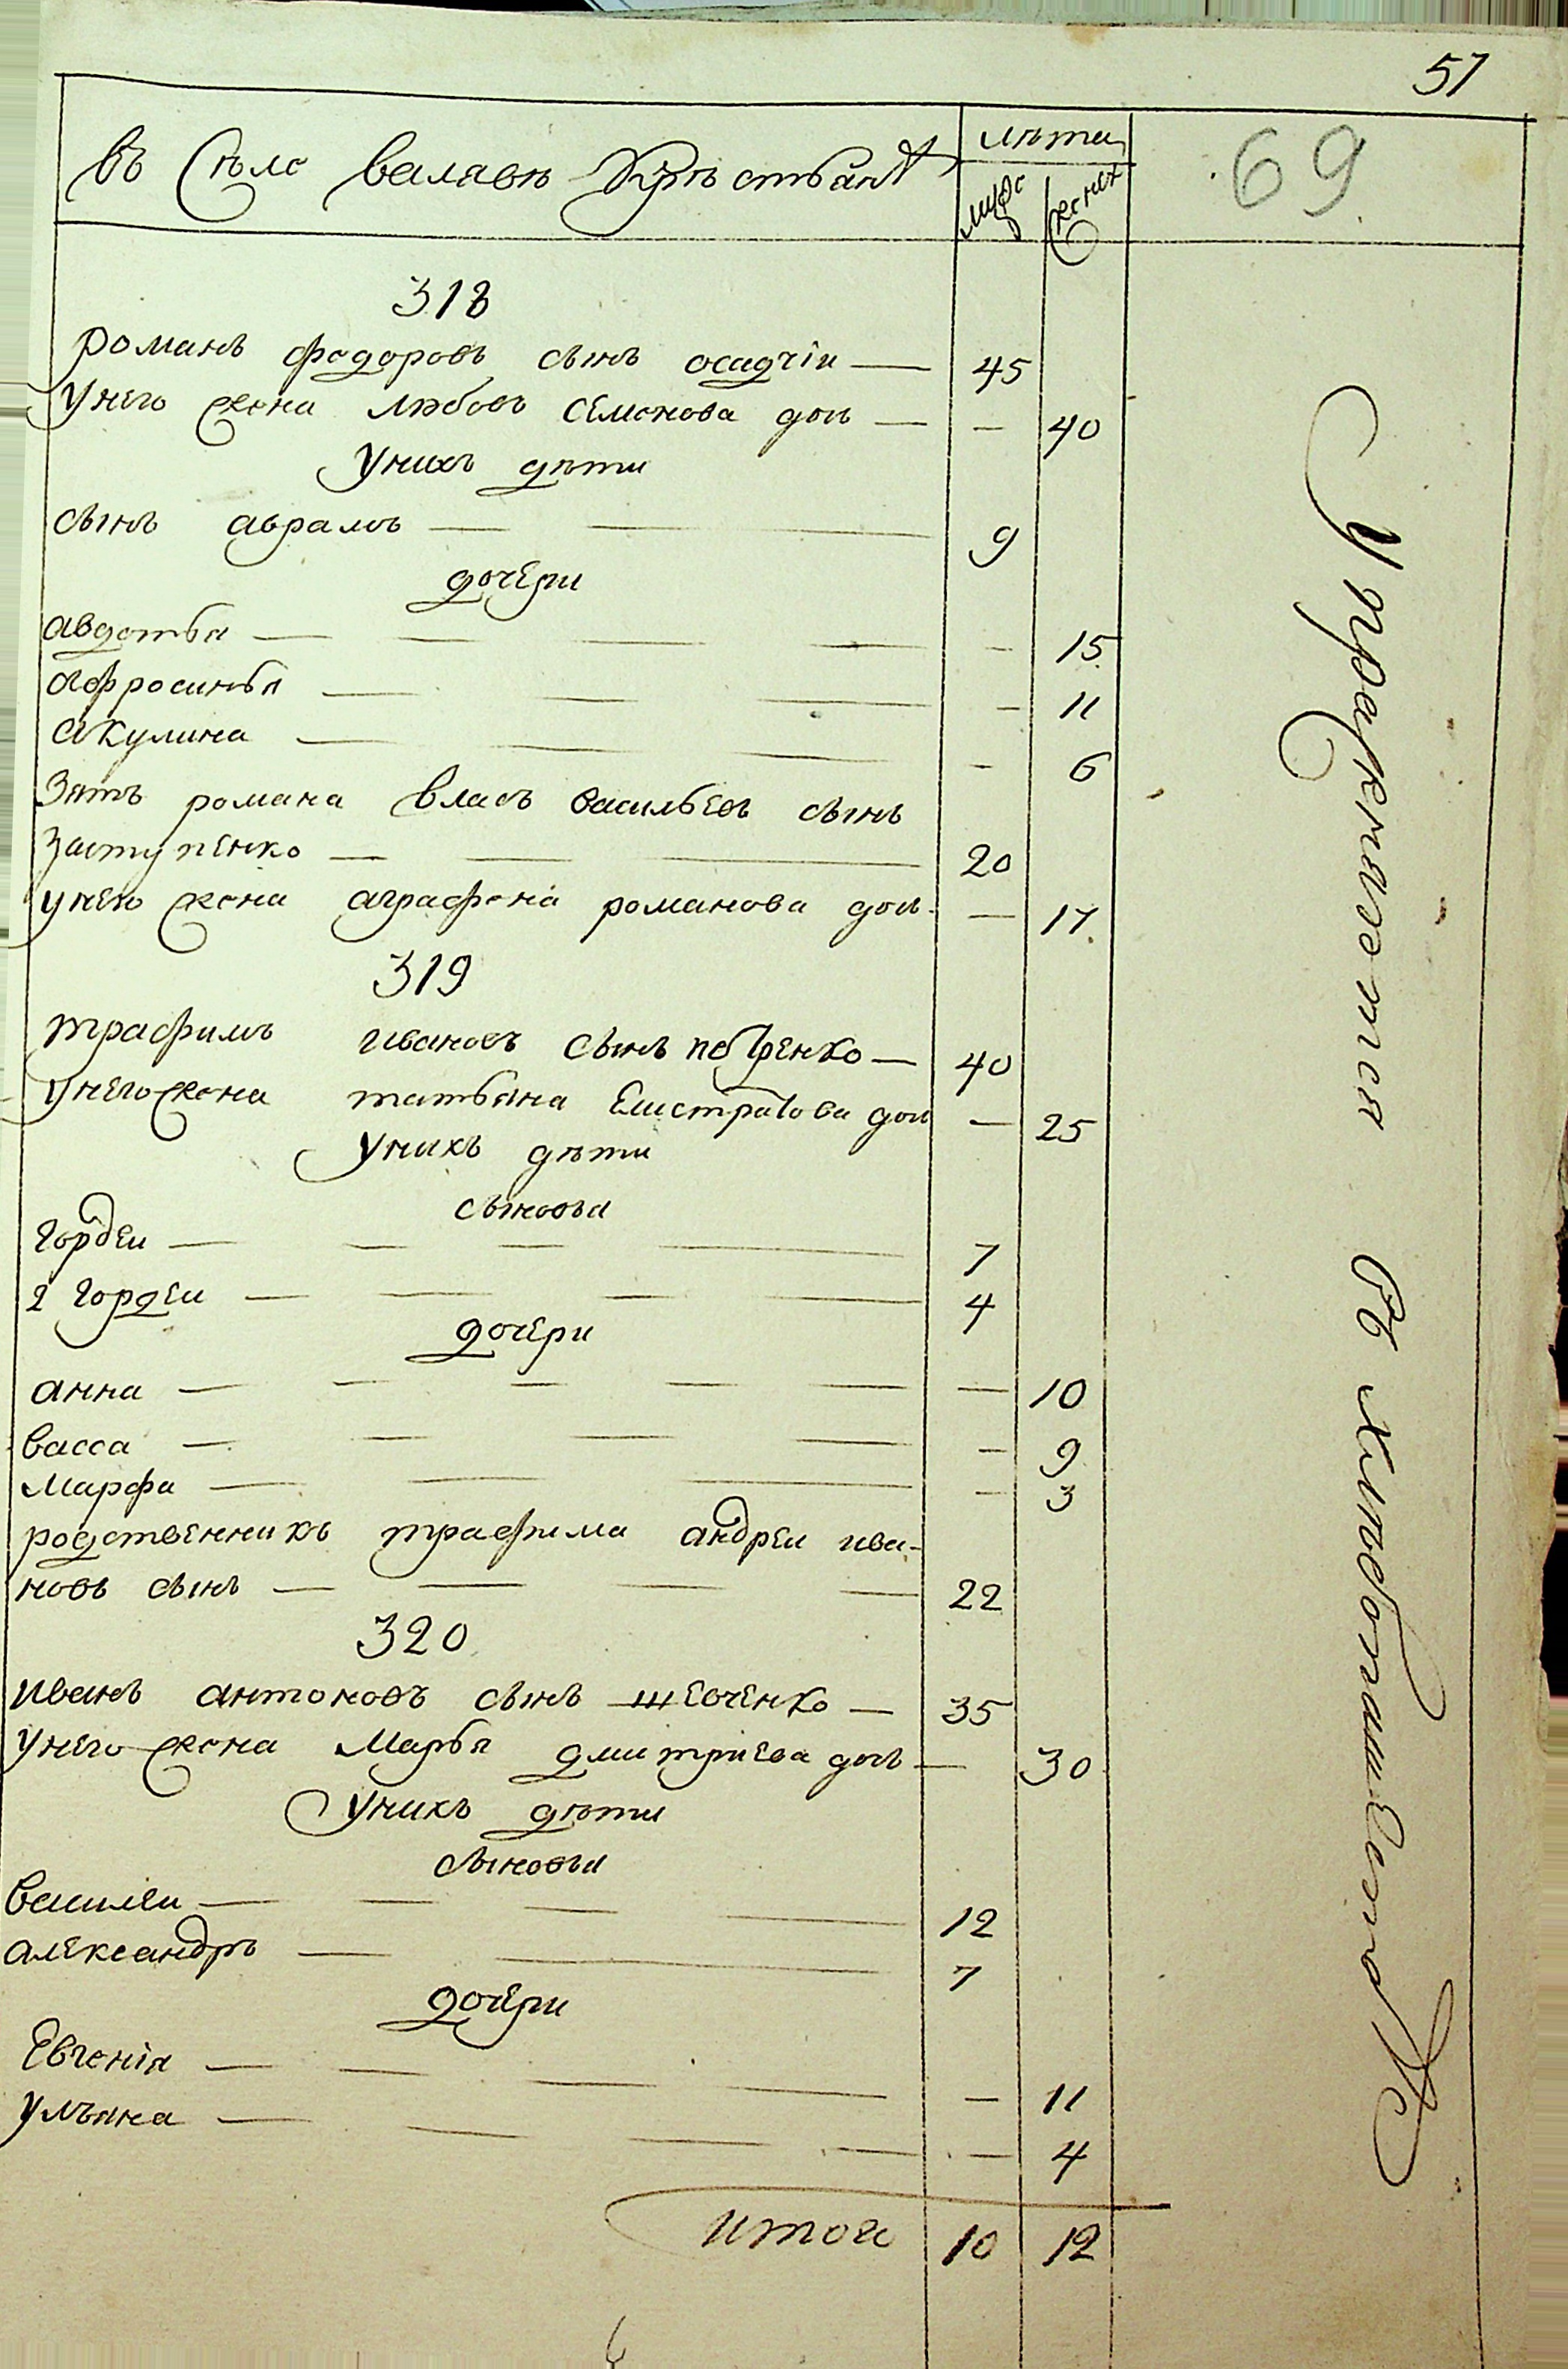 51
69
въ селѣ валавѣ крѣстьянъ
лѣта
муже
женех
318
романъ федоровъ сынъ осадчiи — 45
У него жена любовъ семенова дочь — — 40
У нихъ дѣти
сынъ аврамъ — — 9
дочери
авдотья — — — — — 15
афросинья — — — — 11
акулина — — — — 6
зять романа власъ васильевъ сынъ
заступенко — — — 20
у него жена аграфена романова дочь — — 17
319
трафимъ ивановъ сынъ петренко — 40
У него жена татьяна Елистратова дочь — 25
У нихъ дѣти
сыновья
гордеи — — — — 7
2 гордеи — — — — 4
дочери
анна — — — — — — 10
васса — — — — — 9
марфа — — — — 3
родственникъ трафима андреи ива-
новъ сынъ — — — — 22
320
иванъ антоновъ сынъ шевченко — 35
У него жена марья дмитриева дочь — 30
У нихъ дѣти
сыновья
василеи — — — — 12
александръ — — 7
дочери
Евгенiя — — — — — 11
ульяна — — — — — 4
итого 10 12
Упражняется въ хлѣбопашествѣ